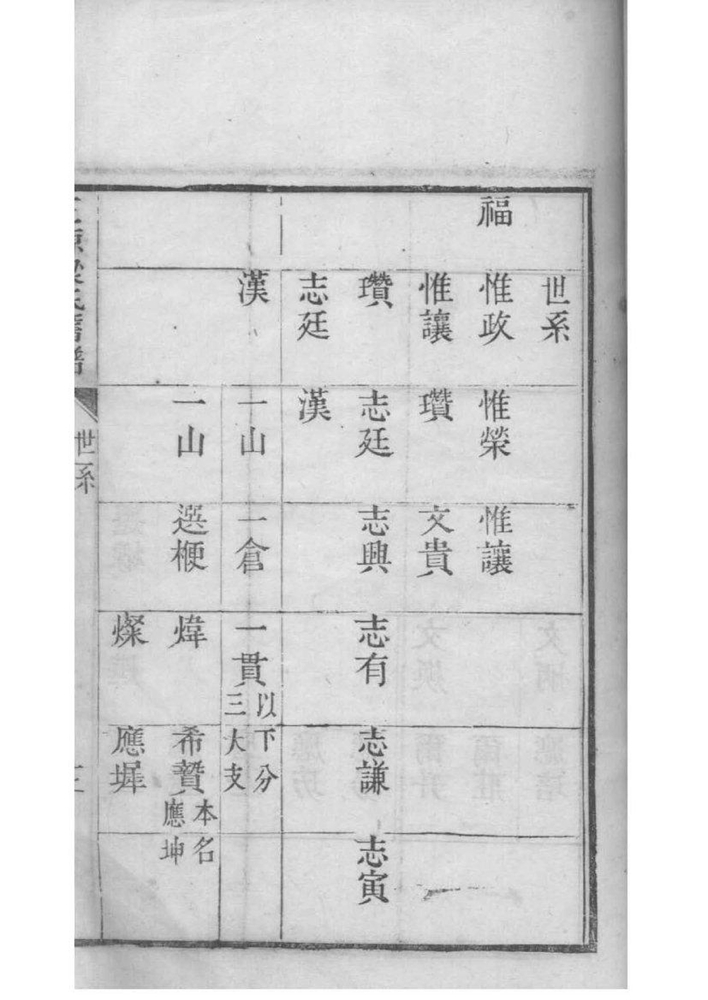 世系
福 惟政 惟榮 惟讓
惟讓 瓚 文貴
瓚 志廷 志興 志有 志謙 志寅
志廷 漢
漢 一山 一倉 一貫 以下分三大支
一山 選梗 煒 希贊 本名應坤
燦 應墀
世系